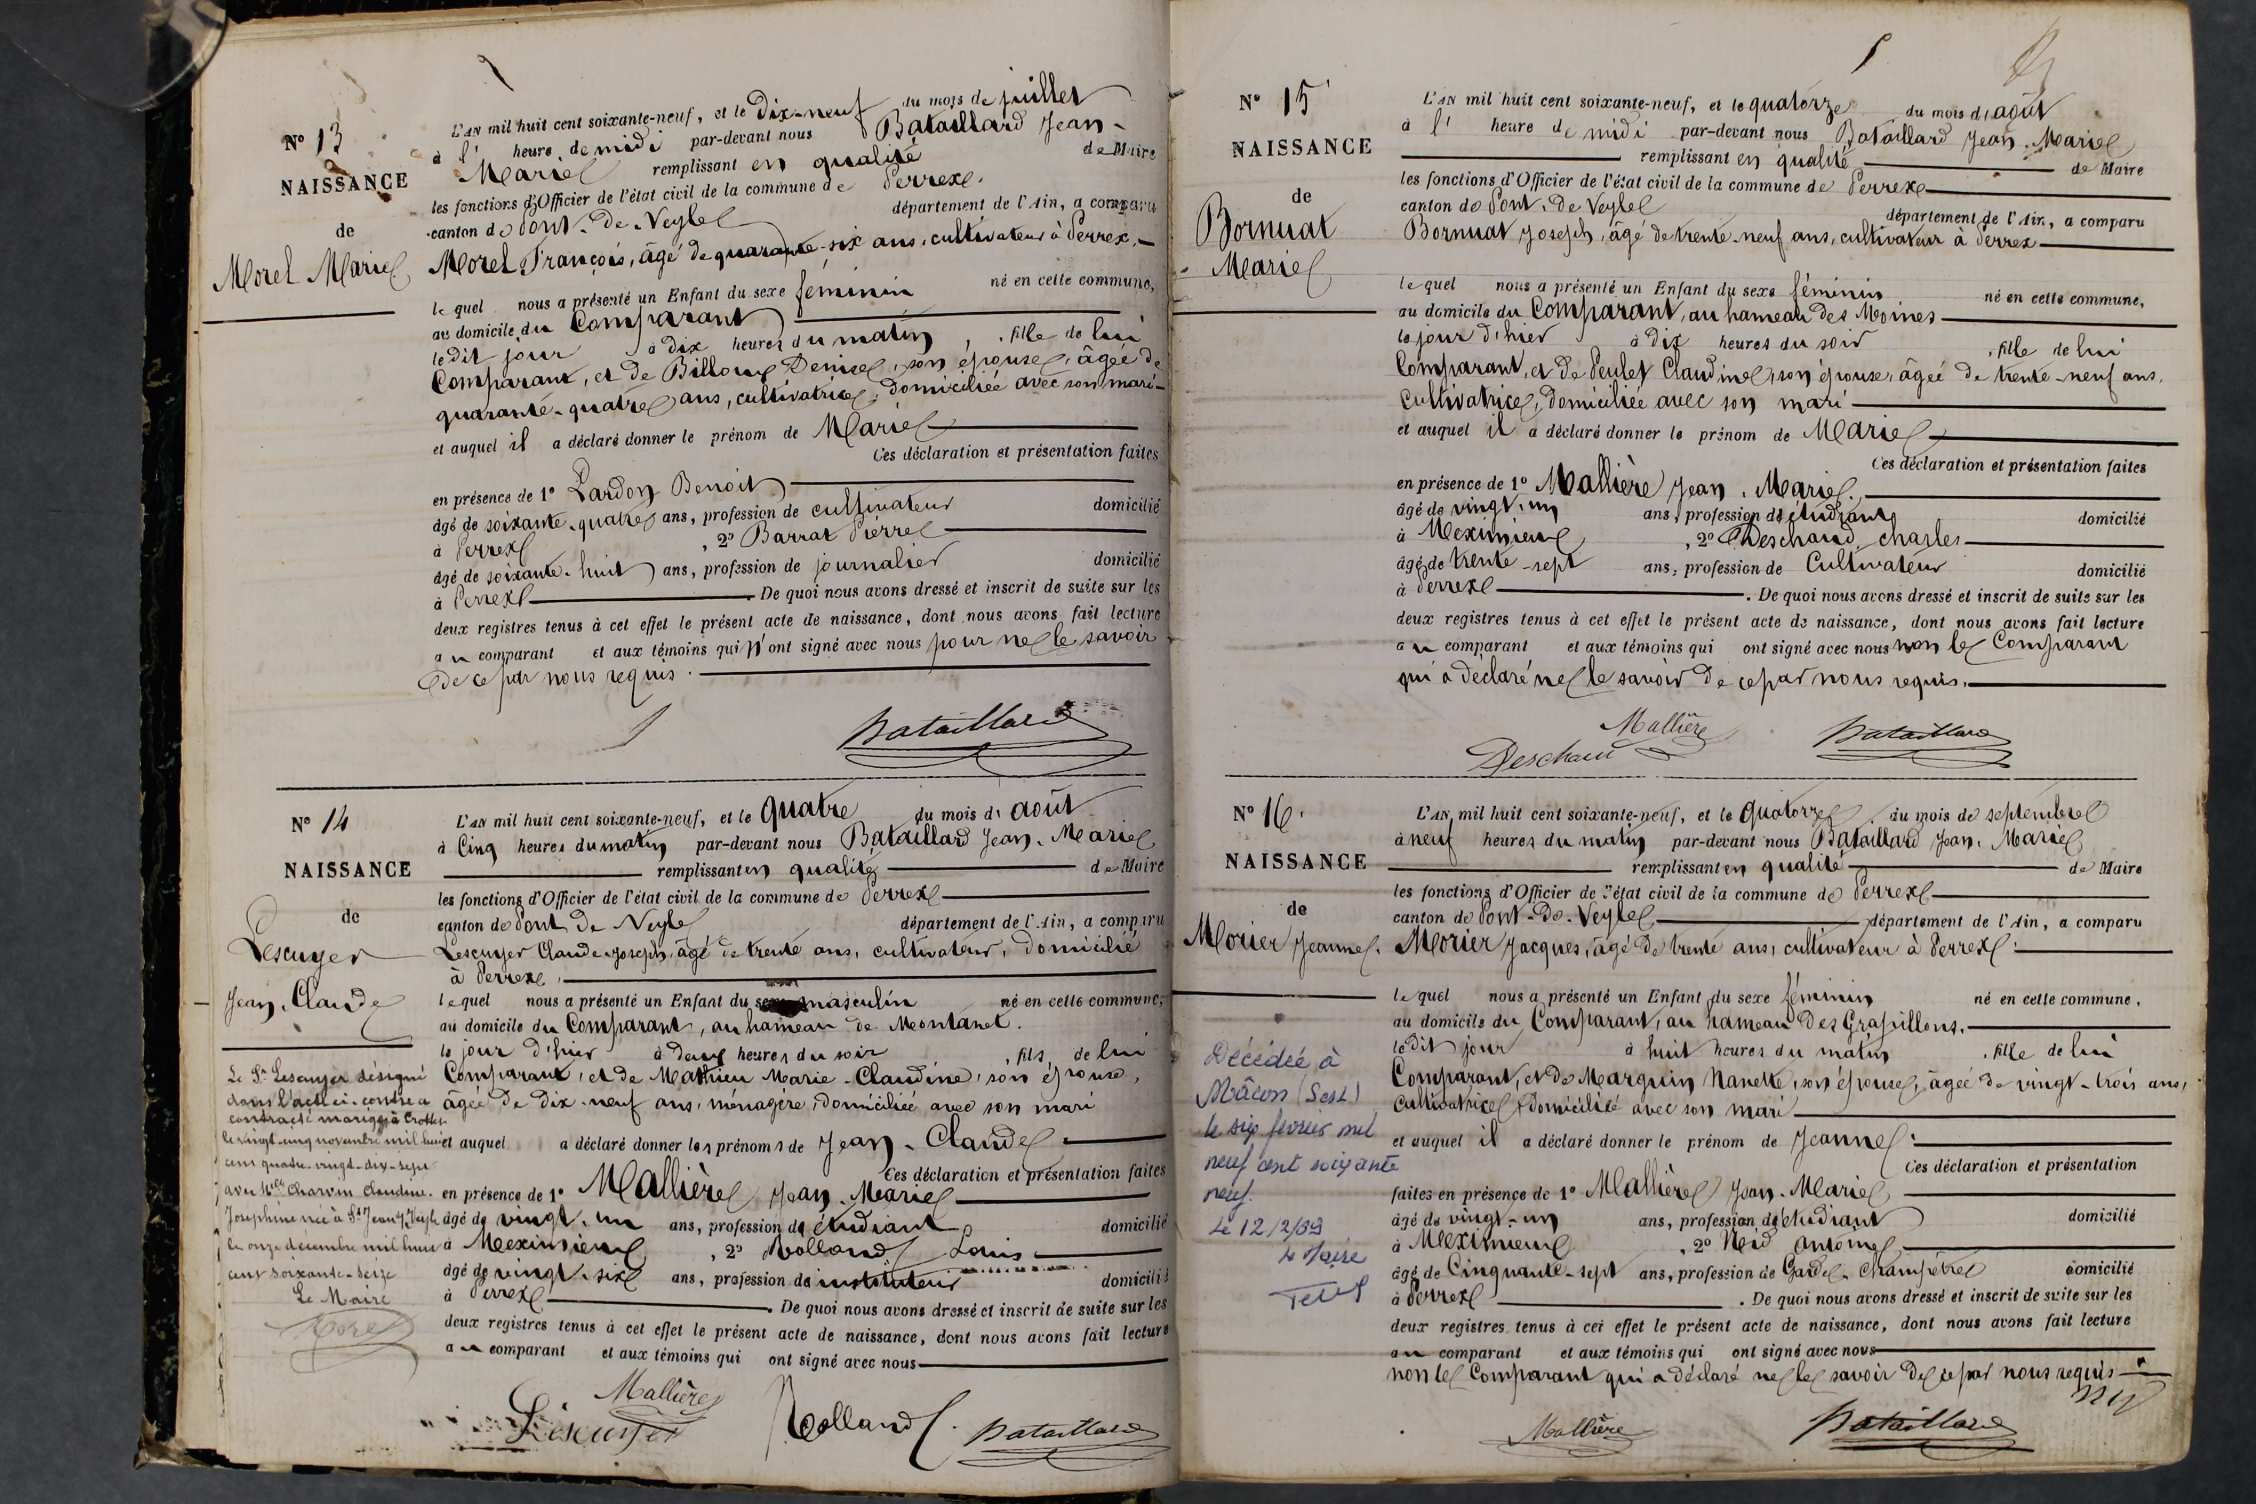 N° 13
NAISSANCE
de
Morel Marie
L'AN mil huit cent soixante-neuf, et le Dix-neuf du mois de juillet
à l' heure de midi par-devant nous Bataillard Jean-
Marie remplissant en qualité de Maire
les fonctions d'Officier de l'état civil de la commune de Perrex.
canton de Pont-de-Veyle département de l'Ain, a comparu
Morel François, âgé de quarante-six ans, cultivateur à Perrex,
le quel nous a présenté un Enfant du sexe féminin né en cette commune,
au domicile du Comparant
le dit jour à dix heures du matin, fille de lui
Comparant, et de Billoux Denise, son épouse, âgée de
quarante-quatre ans, cultivatrice, domiciliée avec son mari
et auquel il a déclaré donner le prénom de Marie
Ces déclaration et présentation faites
en présence de 1° Lardon Benoit
âgé de soixante-quatre ans, profession de cultivateur domicilié
à Perrex, 2° Barrat Pierre
âgé de soixante-huit ans, profession de journalier domicilié
à Perrex. De quoi nous avons dressé et inscrit de suite sur les
deux registres tenus à cet effet le présent acte de naissance, dont nous avons fait lecture
au comparant et aux témoins qui n'ont signé avec nous pour ne le savoir
de ce par nous requis.
Bataillard
N° 14
NAISSANCE
de
Lescuyer
Jean-Claude
Le Sr Lescuyer désigné
dans l'acte ci-contre a
contracté mariage à Crottet
le vingt-cinq novembre mil huit
cent quatre-vingt-dix-sept
avec Mlle Charvin Claudine-
Joséphine née à St Jean s/ Veyle
le onze décembre mil huit
cent soixante-seize
Le Maire
Morel
L'AN mil huit cent soixante-neuf, et le quatre du mois d'août
à Cinq heures du matin par-devant nous Bataillard Jean-Marie
remplissant en qualité de Maire
les fonctions d'Officier de l'état civil de la commune de Perrex
canton de Pont de Veyle département de l'Ain, a comparu
Lescuyer Claude-Joseph, âgé de trente ans, cultivateur, domicilié
à Perrex,
lequel nous a présenté un Enfant du sexe masculin né en cette commune,
au domicile du Comparant, au hameau de Montanet.
le jour d'hier à deux heures du soir, fils de lui
Comparant, et de Mathieu Marie-Claudine, son épouse,
âgée de dix-neuf ans, ménagère, domiciliée avec son mari
et auquel a déclaré donner les prénoms de Jean-Claude
Ces déclaration et présentation faites
en présence de 1° Mallière Jean-Marie
âgé de vingt-un ans, profession de étudiant domicilié
à Meximieux, 2° Rolland Louis
âgé de vingt-six ans, profession de instituteur domicilié
à Perrex. De quoi nous avons dressé et inscrit de suite sur les
deux registres tenus à cet effet le présent acte de naissance, dont nous avons fait lecture
au comparant et aux témoins qui ont signé avec nous
Mallière
Lescuyer Rolland Bataillard
N° 15
NAISSANCE
de
Bornuat
Marie
L'AN mil huit cent soixante-neuf, et le quatorze du mois d'août
à l' heure de midi par-devant nous Bataillard Jean-Marie
remplissant en qualité de Maire
les fonctions d'Officier de l'état civil de la commune de Perrex
canton de Pont-de Veyle département de l'Ain, a comparu
Bornuat Joseph, âgé de trente-neuf ans, cultivateur à Perrex
lequel nous a présenté un Enfant du sexe féminin né en cette commune,
au domicile du Comparant, au hameau des Moines
le jour d'hier à dix heures du soir, fille de lui
Comparant, et de Peulet Claudine, son épouse, âgée de trente-neuf ans,
cultivatrice, domiciliée avec son mari
et auquel il a déclaré donner le prénom de Marie
Ces déclaration et présentation faites
en présence de 1° Mallière Jean-Marie
âgé de vingt-un ans, profession d'étudiant domicilié
à Meximieux, 2° Deschaud Charles
âgé de trente-sept ans, profession de Cultivateur domicilié
à Perrex. De quoi nous avons dressé et inscrit de suite sur les
deux registres tenus à cet effet le présent acte de naissance, dont nous avons fait lecture
au comparant et aux témoins qui ont signé avec nous non le Comparant
qui a déclaré ne le savoir de ce par nous requis.
Mallière
Deschaud Bataillard
N° 16.
NAISSANCE
de
Morier Jeanne.
Décédée à
Mâcon (S et L)
le six février mil
neuf cent soixante
neuf.
Le 12/2/69
Le Maire
L'AN mil huit cent soixante-neuf, et le Quatorze du mois de septembre
à neuf heures du matin par-devant nous Bataillard Jean-Marie
remplissant en qualité de Maire
les fonctions d'Officier de l'état civil de la commune de Perrex
canton de Pont-de-Veyle département de l'Ain, a comparu
Morier Jacques, âgé de trente ans, cultivateur à Perrex.
lequel nous a présenté un Enfant du sexe féminin né en cette commune,
au domicile du Comparant, au hameau des Grapillons.
le dit jour à huit heures du matin, fille de lui
Comparant, et de Marguin Nanette, son épouse, âgée de vingt-trois ans,
cultivatrice, domiciliée avec son mari
et auquel il a déclaré donner le prénom de Jeanne.
Ces déclaration et présentation
faites en présence de 1° Mallière Jean-Marie
âgé de vingt-un ans, profession d'étudiant domicilié
à Meximieux, 2° Neid Antoine
âgé de Cinquante-sept ans, profession de Garde-Champêtre domicilié
à Perrex. De quoi nous avons dressé et inscrit de suite sur les
deux registres tenus à cet effet le présent acte de naissance, dont nous avons fait lecture
au comparant et aux témoins qui ont signé avec nous
non le Comparant qui a déclaré ne le savoir de ce par nous requis
Mallière Bataillard